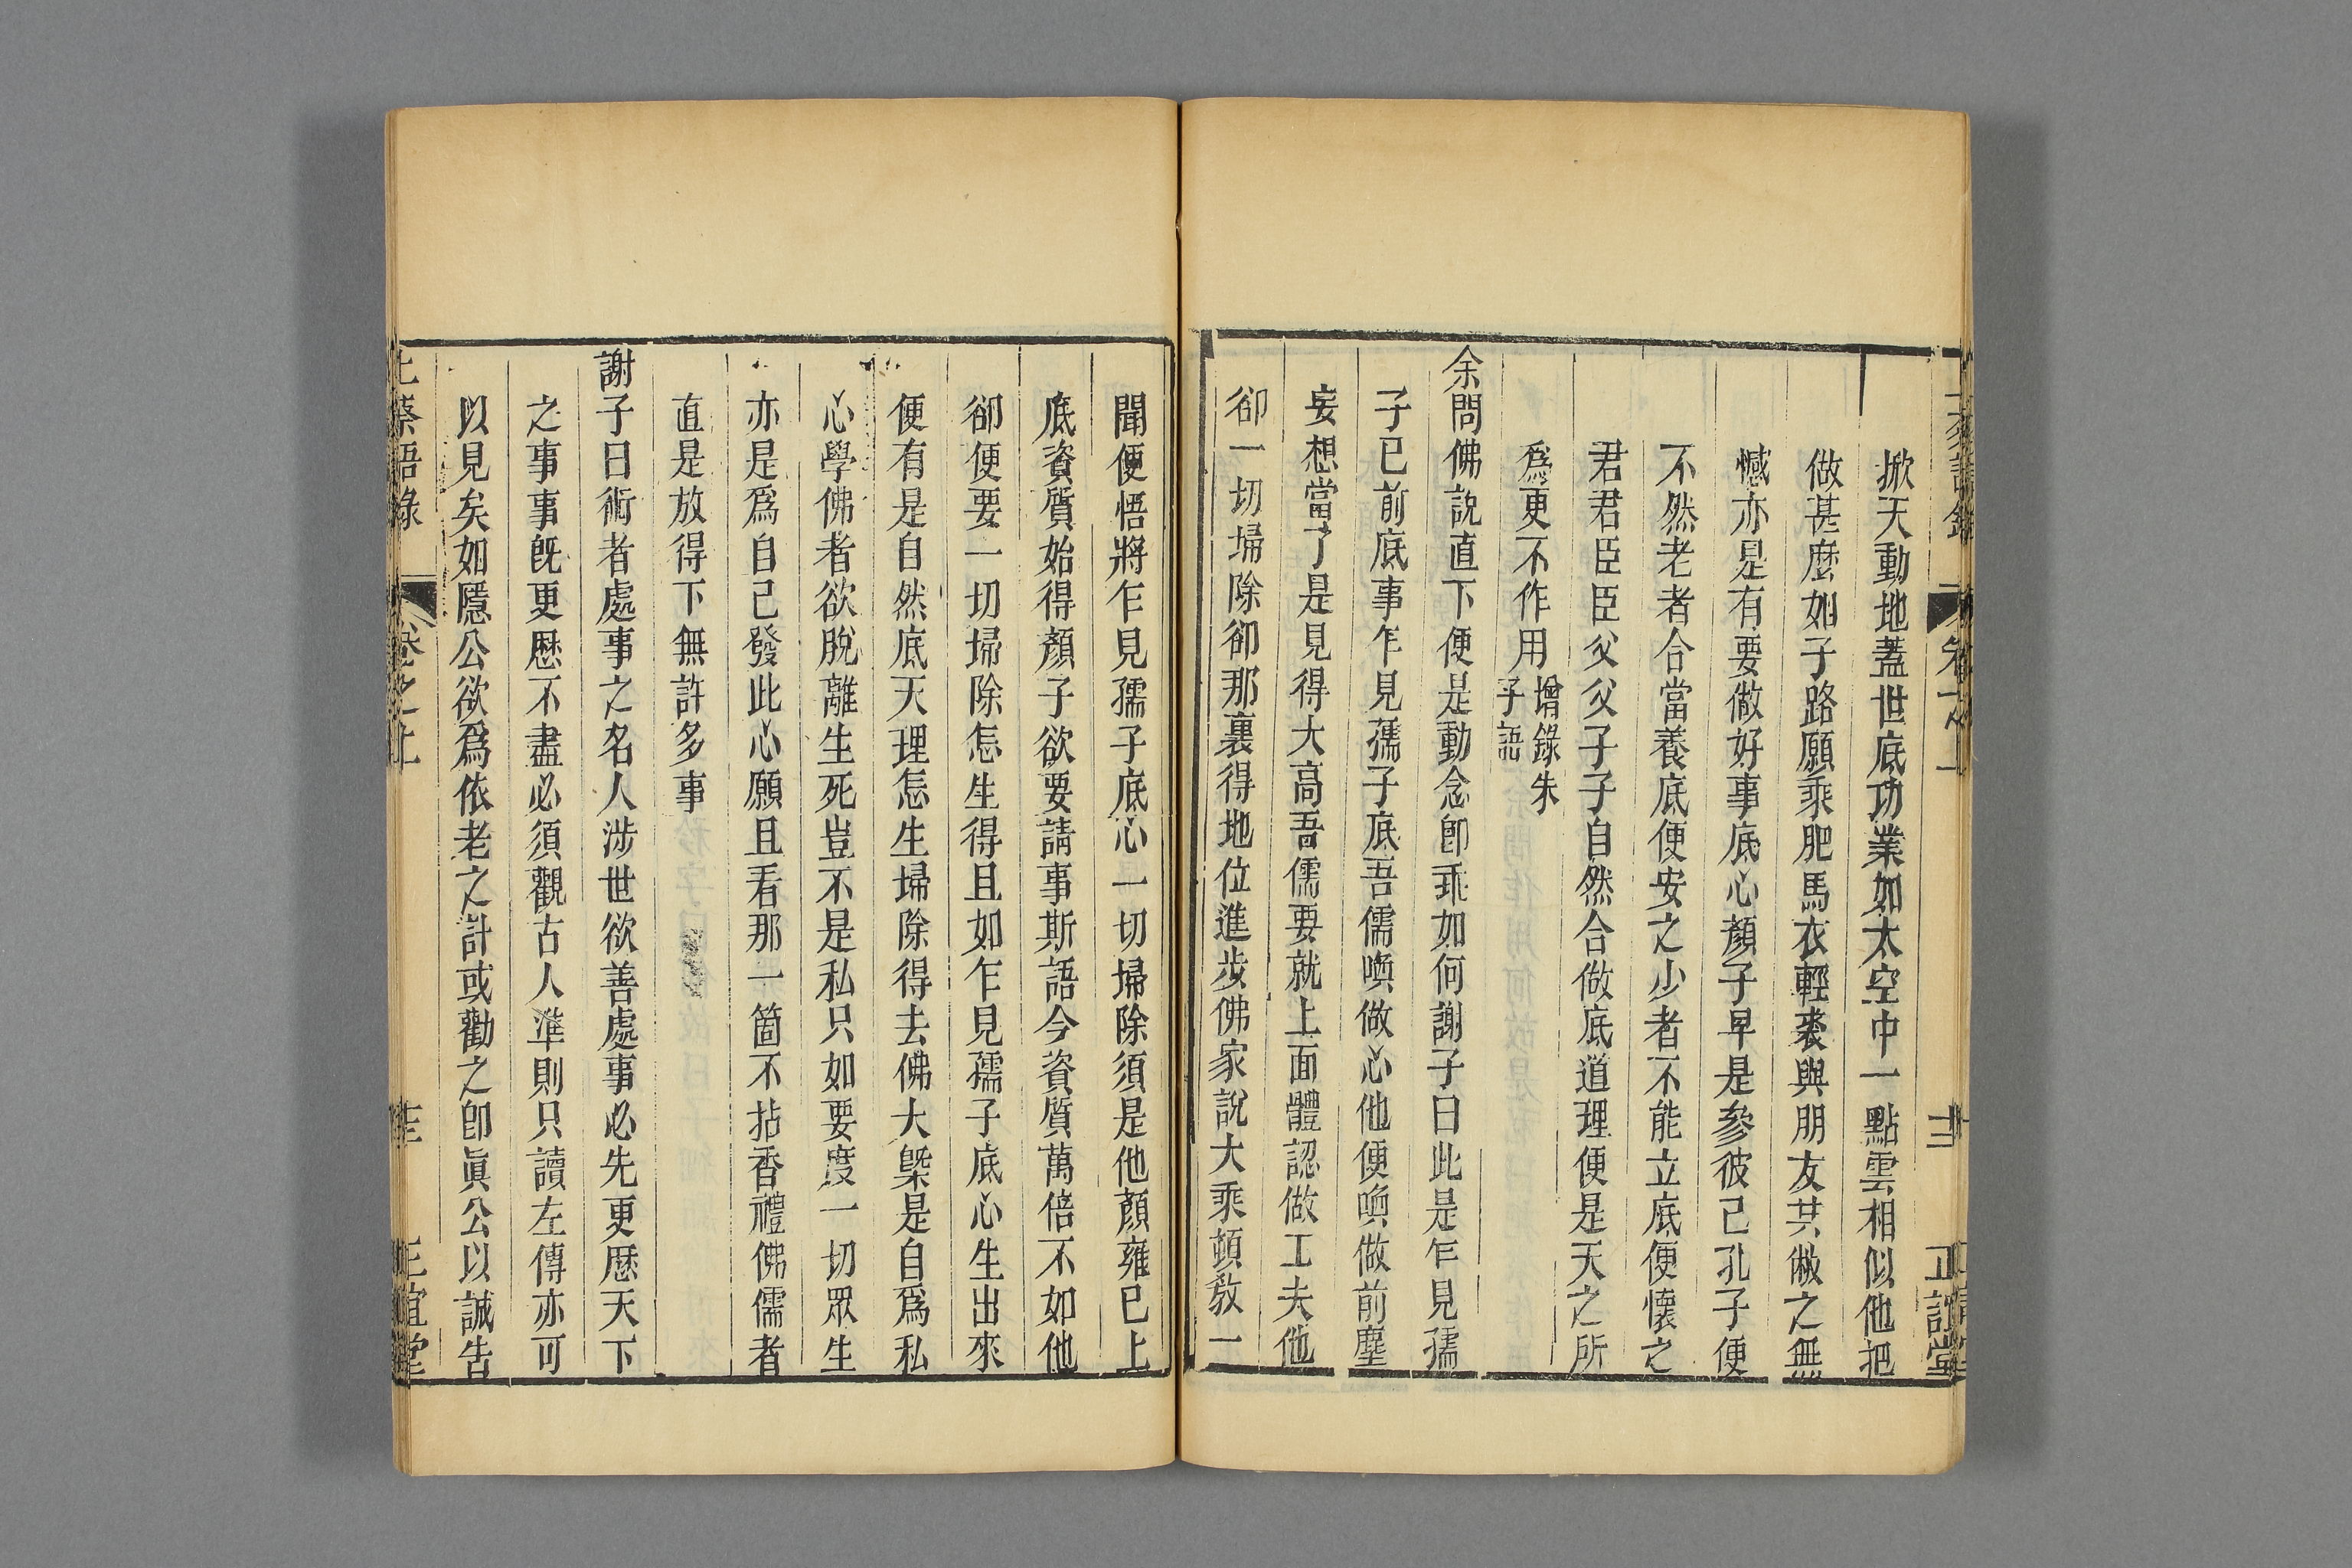 掀天動地蓋世底功業如太空中一點雲相似他把
做甚麽如子路願乘肥馬衣輕裘與朋友共敝之無
憾亦是有要做好事底心顏子早是參彼己孔子便
不然老者合當養底便安之少者不能立底便懷之
君君臣臣父父子子自然合做底道理便是天之所
爲更不作用增錄朱子語
余問佛說直下便是動念卽乖如何謝子曰此是乍見孺
子已前底事乍見孺子底吾儒喚做心他便喚做前塵
妄想當了是見得大高吾儒要就上面體認做工夫他
卻一切埽除卻那裏得地位進步佛家說大乘頓敎一
聞便悟將乍見孺子底心一切埽除須是他顏雍已上
底資質始得顏子欲要請事斯語今資質萬倍不如他
卻便要一切埽除怎生得且如乍見孺子底心生出來
便有是自然底天理怎生埽除得去佛大槩是自爲私
心學佛者欲脫離生死豈不是私只如要度一切眾生
亦是爲自己發此心願且看那一箇不拈香禮佛儒者
直是放得下無許多事
謝子曰術者處事之名人涉世欲善處事必先更歷天下
之事事旣更歷不盡必須觀古人準則只讀左傳亦可
以見矣如隱公欲爲依老之計或勸之卽眞公以誠告
上蔡語錄
卷之上
正誼堂